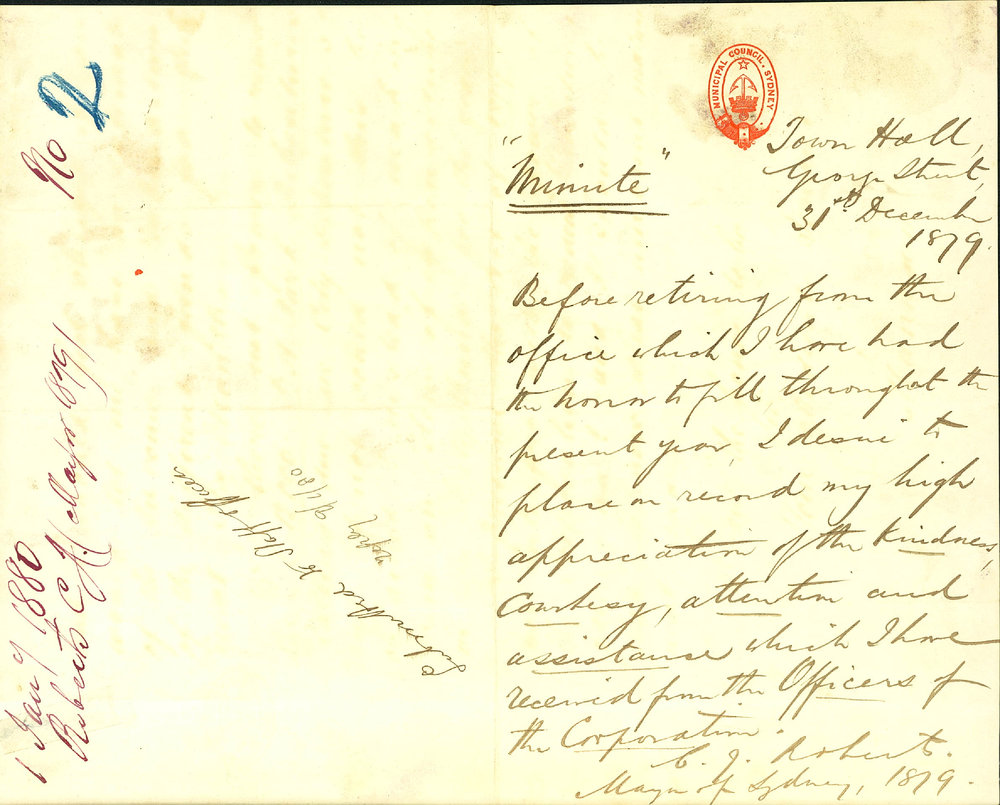 No 2
1 Jany 1880
Roberts C. J. (Mayor 1879)
Submitted to Staff Officers
9/1/80
MUNICIPAL COUNCIL. SYDNEY
Town Hall,
George Street,
31st December
1879.
"Minute"
Before retiring from the
office which I have had
the honor to fill throughout the
present year, I desire to
place on record my high
appreciation of the Kindness,
Courtesy, attention and
assistance which I have
received from the Officers of
the Corporation.
C. J. Roberts.
Mayor of Sydney, 1879.